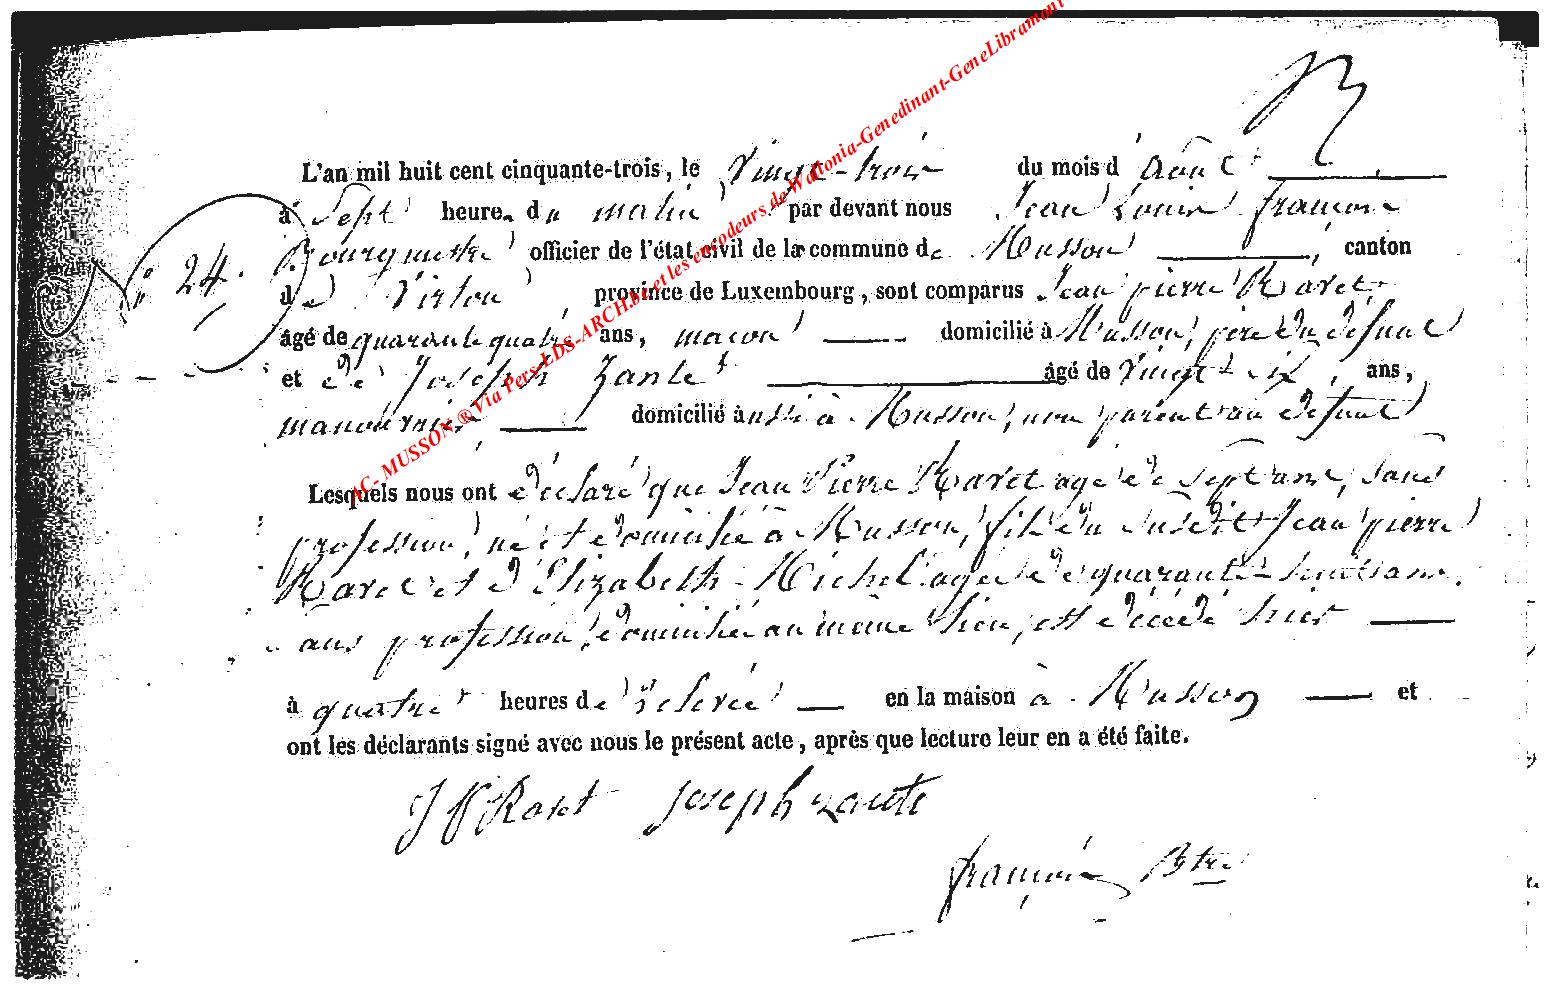 AC- MUSSON ® Via Pers-LDS-ARCH.be et les encodeurs de Wallonia-Genedinant-GeneLibramont
L'an mil huit cent cinquante-trois, le vingt-trois du mois d'août
à sept heures du matin par devant nous Jean Louis françois
Bourgmestre officier de l'état civil de la commune de Musson, canton
N° 24.
de Virton province de Luxembourg, sont comparus Jean pierre Ravet
âgé de quarante quatre ans, maçon domicilié à Musson, père du défunt
et de Joseph Zante âgé de vingt six, ans,
manouvrier domicilié aussi à Musson, non parent au défunt
Lesquels nous ont déclaré que Jean Pierre Ravet agé de sept ans, sans
profession, né et domicilié à Musson, fils du susdit Jean pierre
Ravet et d'Elizabeth Michel agée de quarante-huit ans.
sans profession, domiciliée au même lieu, est décédé hier
à quatre heures de relevée en la maison à Musson et
ont les déclarants signé avec nous le présent acte, après que lecture leur en a été faite.
J P Ravet Joseph zante
françois Btre